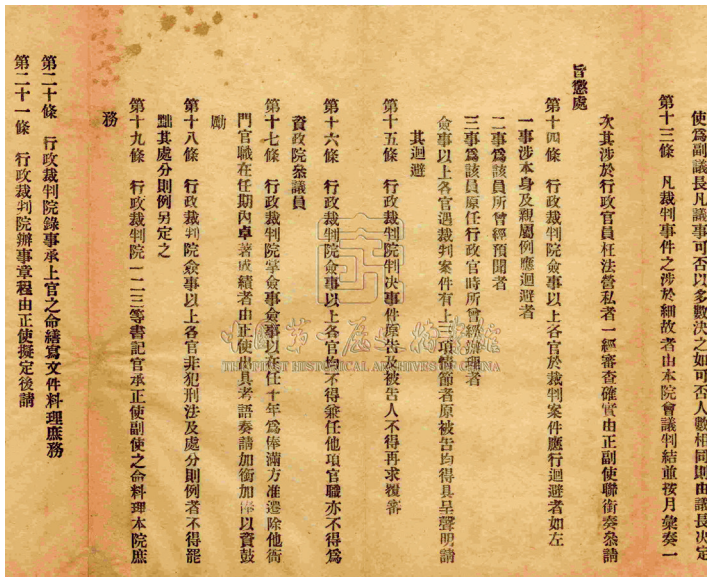 使爲副議長凡議事可否以多數決之如可否人數相同則由議長決定
第十三條　凡裁判事件之涉於細故者由本院會議判結並按月彙奏一
次其涉於行政官員枉法營私者一經審查確實由正副使聯銜奏叅請
旨懲處
第十四條　行政裁判院僉事以上各官於裁判案件應行迴避者如左
一事涉本身及親屬例應迴避者
二事爲該員所曾經預聞者
三事爲該員原任行政官時所曾經辦理者
僉事以上各官遇裁判案件有上三項情節者原被告均得具呈聲明請
其迴避
第十五條　行政裁判院判決事件原告及被告人不得再求覆審
第十六條　行政裁判院僉事以上各官均不得兼任他項官職亦不得爲
資政院叅議員
第十七條　行政裁判院掌僉事僉事以在任十年爲俸滿方准遷除他衙
門官職在任期內卓著成績者由正使出具考語奏請加銜加俸以資鼓
勵
第十八條　行政裁判院僉事以上各官非犯刑法及處分則例者不得罷
黜其處分則例另定之
第十九條　行政裁判院一二三等書記官承正使副使之命料理本院庶
務
第二十條　行政裁判院錄事承上官之命繕寫文件料理庶務
第二十一條　行政裁判院辦事章程由正使擬定後請
中國第一歷史檔案館
THE FIRST HISTORICAL ARCHIVES OF CHINA